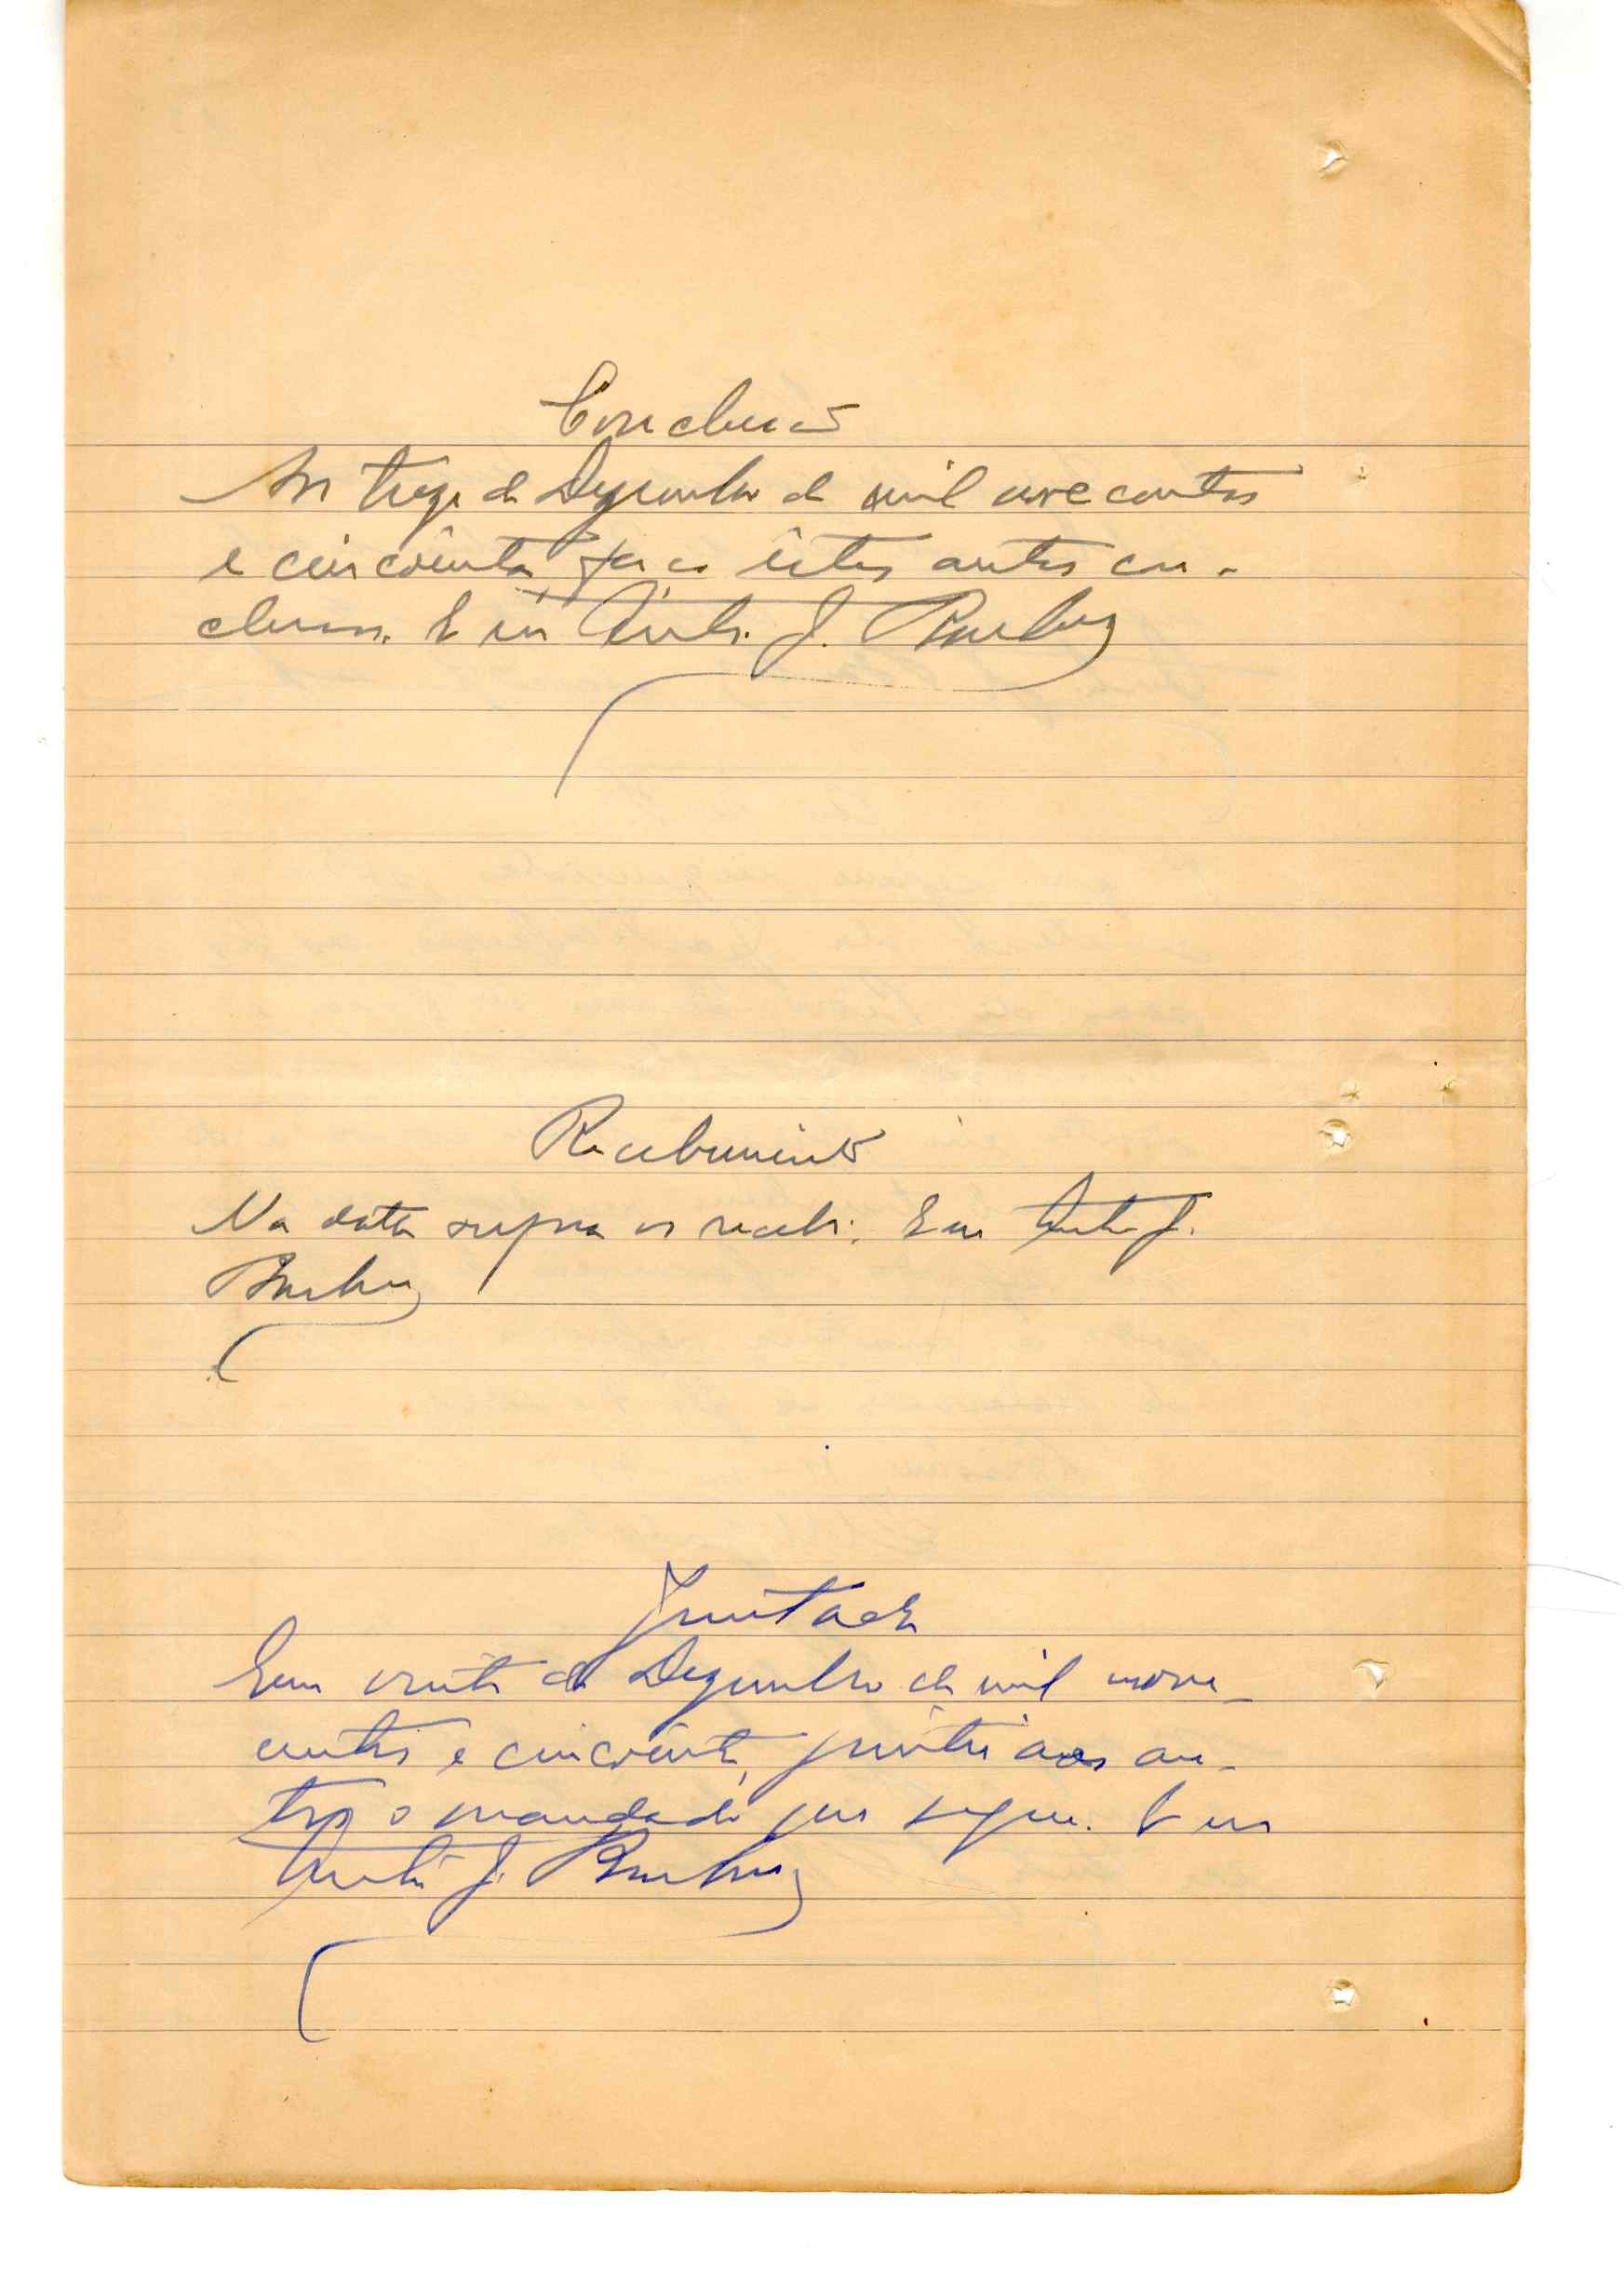 Conclusão
Aos treze de Dezembro de mil novecentos
e cincoênta, faço êstes autos con-
clusos. Eu J. Barbosa
Recebimento
Na data supra os recebi. Eu J.
Barbosa
Juntada
Em vinte de Dezembro de mil nove-
centos e cincoênta, juntei aos au-
tos o mandado que segue. Eu
J. Barbosa